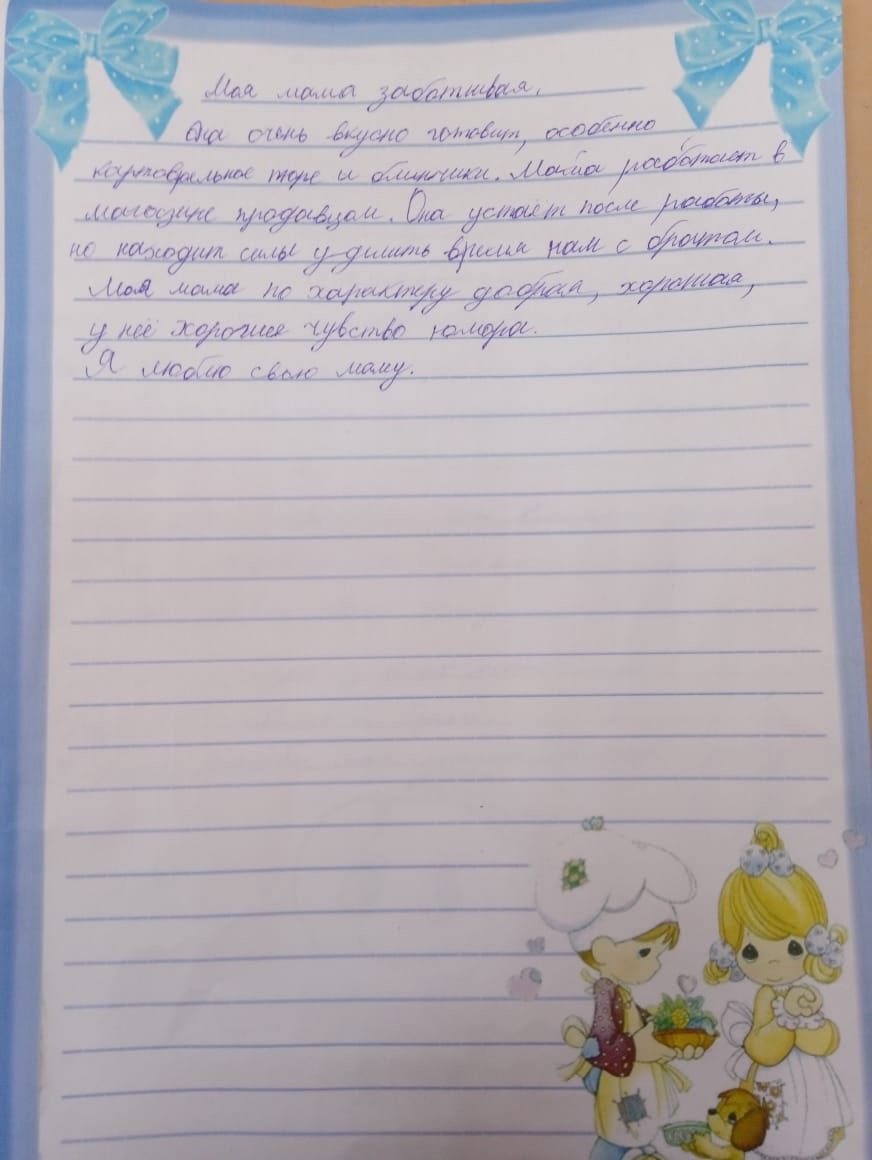 Моя мама заботливая.
Она очень вкусно готовит, особенно
картофельное пюре и блинчики. Мама работает в
магазине продавцом. Она устаёт после работы,
но находит силы уделить время нам с братом.
Моя мама по характеру добрая, хорошая,
у неё хорошее чувство юмора.
Я люблю свою маму.